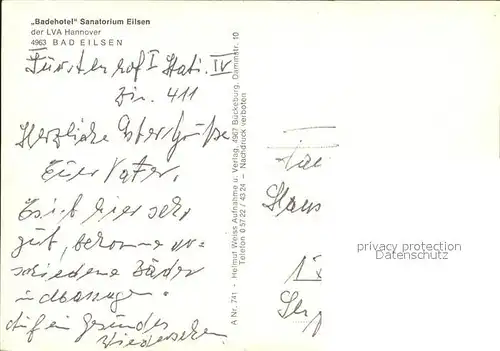 „Badehotel" Sanatorium Eilsen
der LVA Hannover
4963 BAD EILSEN
Fürstenhof I Stati. IV
Zi. 411
Herzliche Ostergrüße
Euer Vater.
Es ist hier sehr
gut, bekomme ver=
schiedene Bäder
u Massagen.
Auf ein gesundes
Wiedersehen.
A Nr. 741 - Helmut Weiss Aufnahme u. Verlag, 4967 Bückeburg, Dammstr. 10
Telefon 0 57 22 / 43 24 - Nachdruck verboten
Hans
privacy protection
Datenschutz